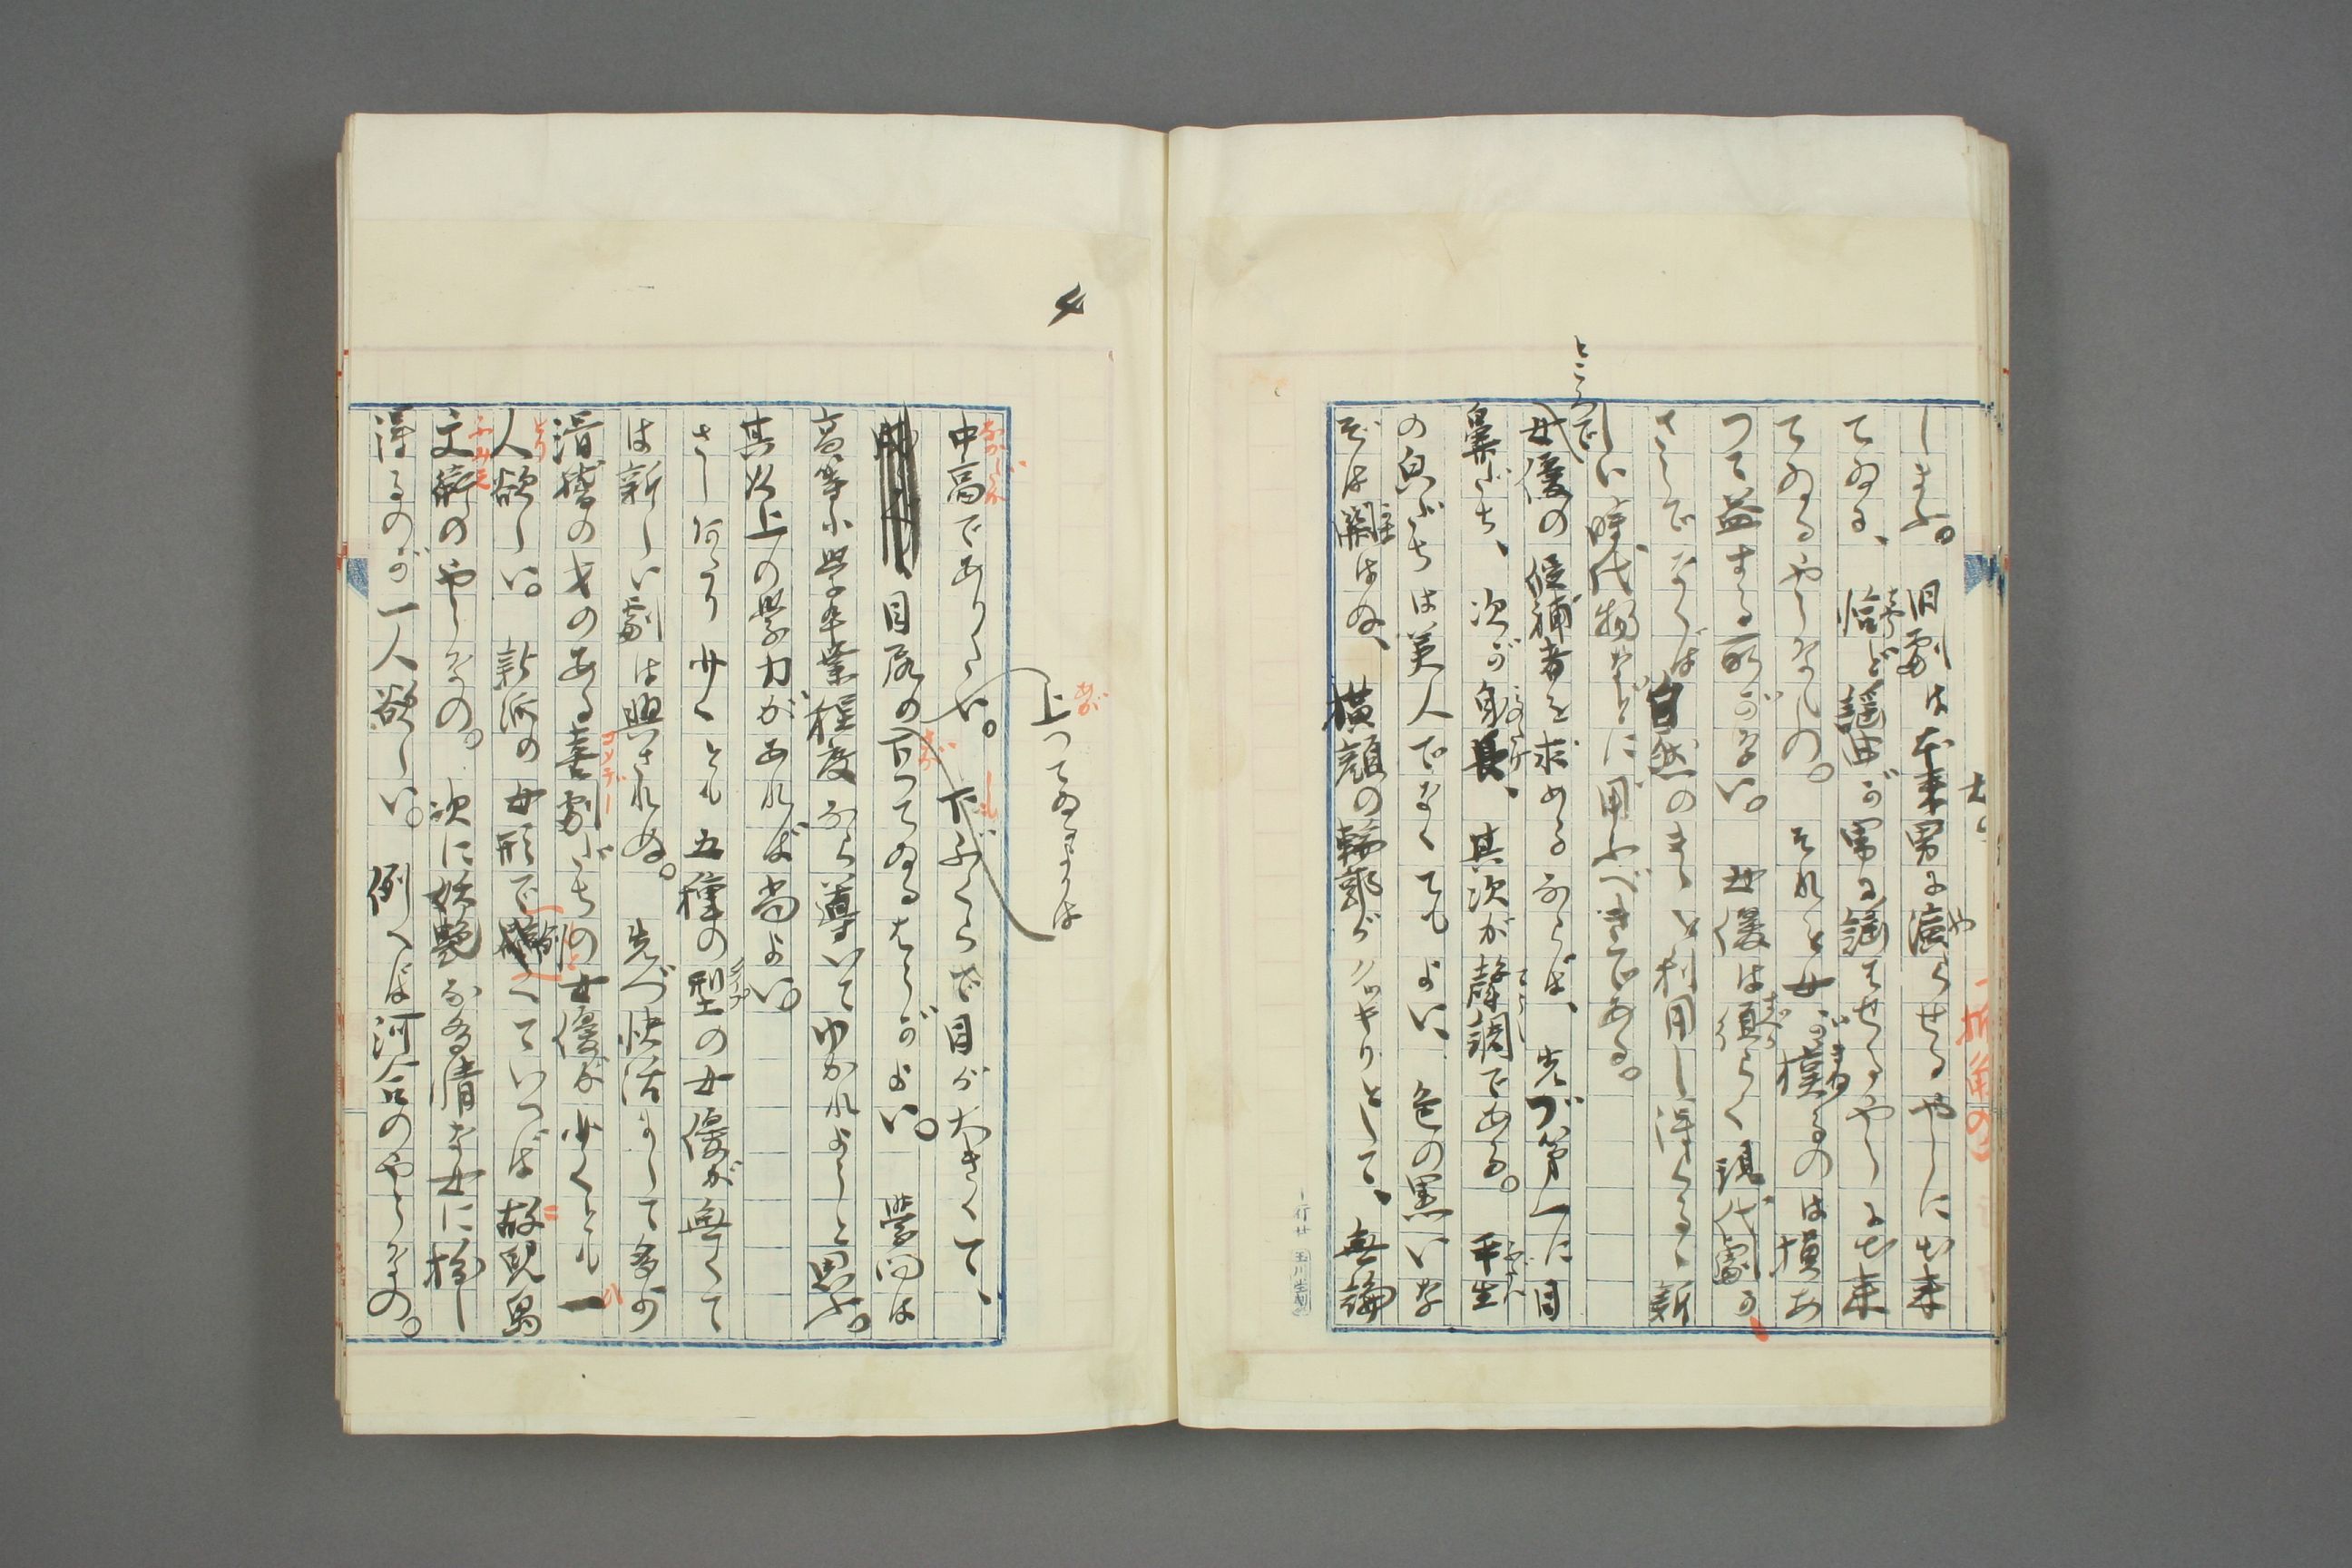 しまふ。旧劇は本来男に演らせるやうに出来
てゐる、恰ど謡曲が男に謡はせるやうに出来
てゐるやうなもの。それを女が模るのは損あ
つて益する所がない。女優は須らく現代劇か
さうでなくば自然のまゝを利用し得らるゝ新
しい時代物などに用ふべきである。
ところで
女優の候補者を求めるならば、先づ第一に目
鼻だち、次が身長、其次が声調である。平生
の目ぶちは美人でなくてもよい、色の黒いな
ぞは関はぬ、横顔の輪郭がクッキリとして、無論
4
上つてゐるよりは
中高でありたい。下ぶくらで目が大きくて、
目尻の下つてゐるはうがよい。学問は
高等小学卒業程度なら導いてゆかれようと思ふ。
其以上の学力があれば尚よい。
さしあたり少くとも五種の型の女優が無くて
は新しい劇は興されぬ。先づ快活にして多少
滑稽の才のある喜劇だちの女優が少くとも一
人欲しい。新派の女形で例していへば故児島
文衛のやうなの。次に妖艶な多情な女に扮し
得るのが一人欲しい。例へば河合のやうなの。